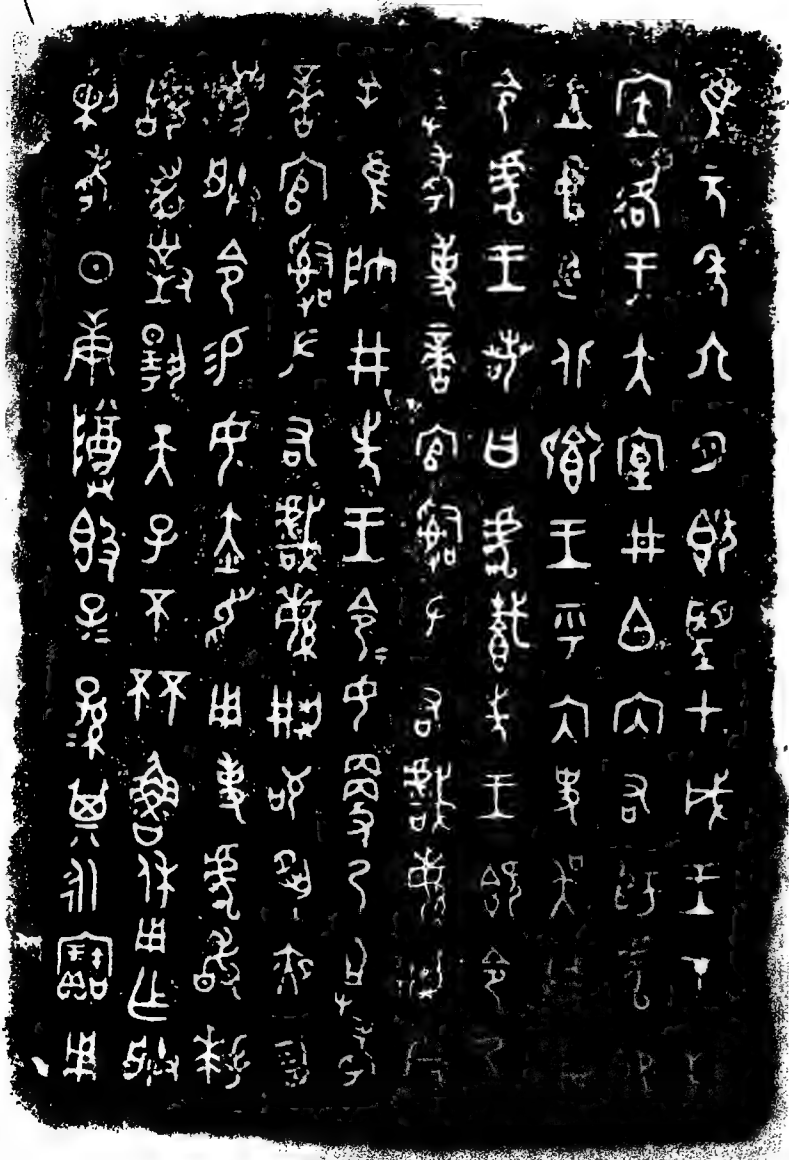 隹元年六月既望甲戌王才杜
㡴𢓜于大室井白內右師虎即
立中廷北鄉王乎內史吳曰冊
令虎王若曰虎𩛥先王既令乃
且考事啻官𤔲左右戲緐荊今
余隹帥井先王令令女更乃且考
啻官𤔲左右戲緐荊敬夙夜
勿灋朕令易女赤舄用事虎敢拜
𩒨首對揚天子不𣎴魯休用乍朕
剌考日庚尊𣪘子子孫孫其永寶用